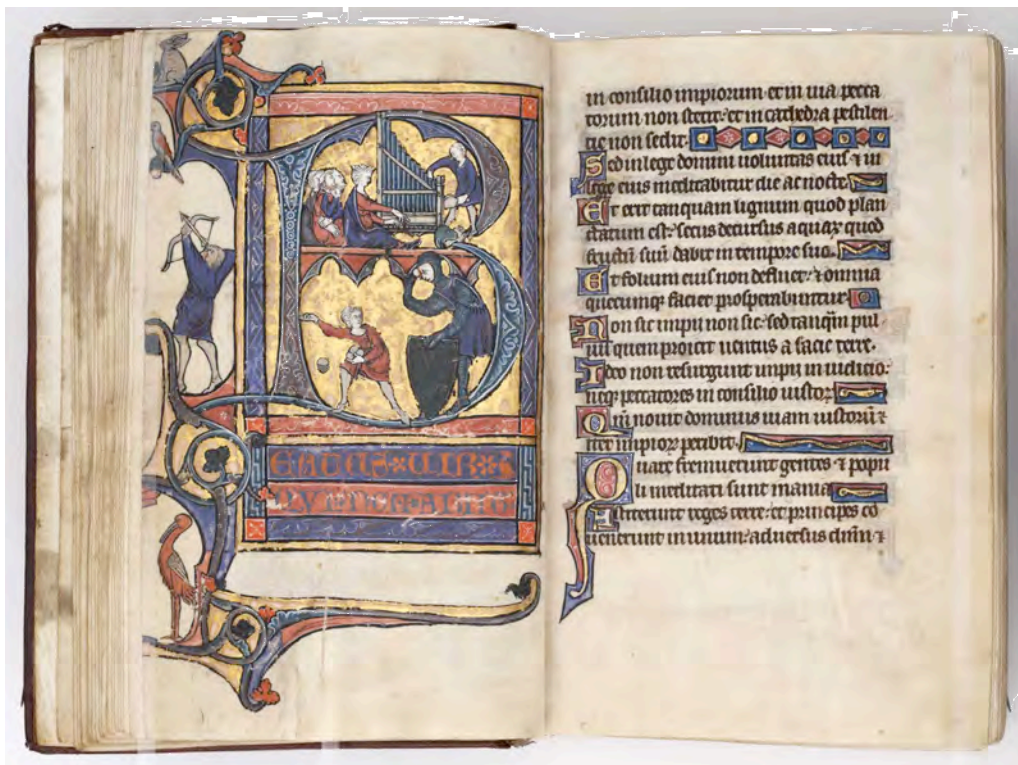 B
EATUS VIR
QVI NON ABIIT
in consilio impiorum et in uia pecca
torum non stetit: et in cathedra pestilen
tie non sedit.
Sed in lege domini uoluntas eius ⁊ in
lege eius meditabitur die ac nocte.
Et erit tanquam lignum quod plan
tatum est: secus decursus aquaꝝ quod
fructū suū dabit in tempore suo.
Et folium eius non defluet: ⁊ omnia
quecumqꝫ faciet prosperabuntur.
Non sic impii non sic: sed tanq̄m pul
uis quem proicit uentus a facie terre.
Ideo non resurgunt impii in iudicio:
neqꝫ peccatores in consilio iustoꝝ
Qm̄ nouit dominus uiam iustorū ⁊
iter impioꝝ peribit.
Quare fremuerunt gentes ⁊ popu
li meditati sunt inania
Astiterunt reges terre: et principes cō
uenerunt in unum: aduersus dnm̄ ⁊